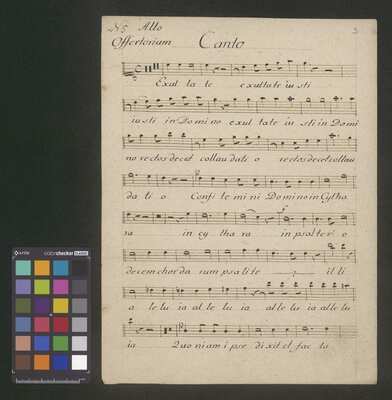 N 5 Alto
Offertorium Canto
3
Exul ta te exultate iu sti
iu sti in Do mi no exul tate iu sti in Domi
no rectos decet collau dati o rectos decet collau
da ti o Confi te mi ni Do mino in Cytha
ra in cy tha ra in psalter o
decem chor da rum psali te il li
a le lu ia al le lu ia al le lu ia al le lu
ia Quo ni am i pse di xit et fac ta
colorchecker CLASSIC